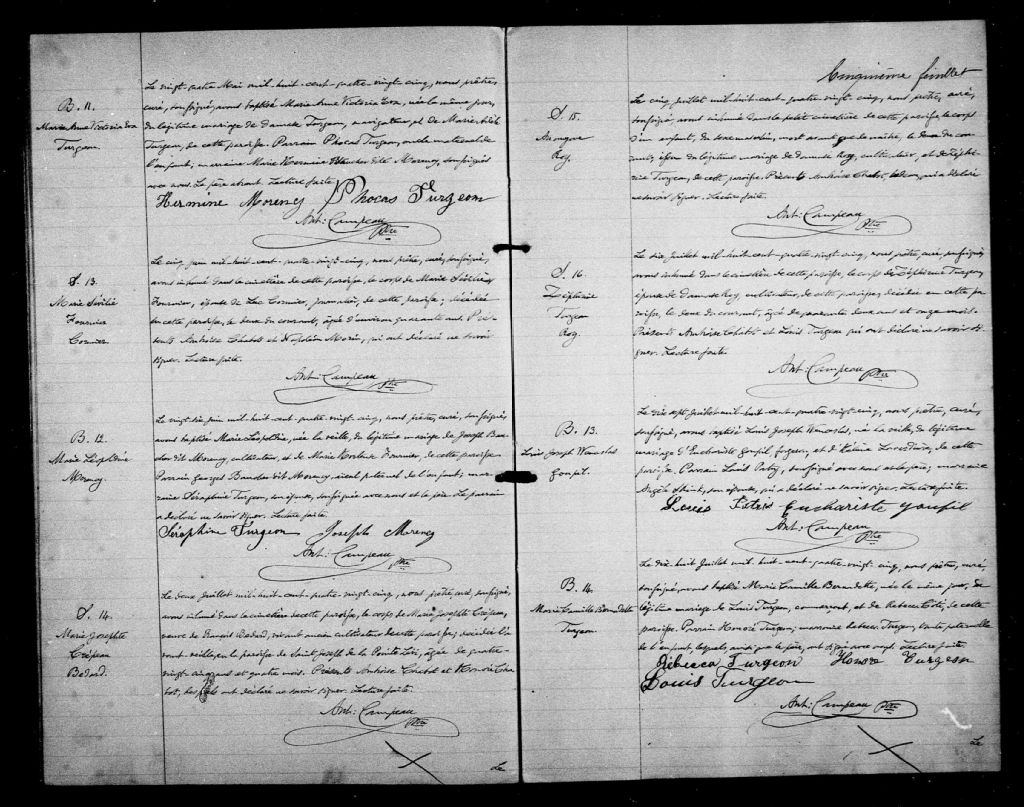 B. 11.
Marie Anne Victoria Eva
Turgeon.
Le vingt-quatre Mai mil-huit-cent-quatre-vingt-cinq, nous prêtre,
curé, soussigné, avons baptisé Marie Anne Victoria Eva, née le même jour,
du légitime mariage de Damase Turgeon, navigateur, et de Marie
Turgeon, de cette paroisse. Parrain Phocas Turgeon, oncle maternel de
l'enfant, marraine Marie Hermine Baucher dit Morency, soussignés
avec nous. Le père absent. Lecture faite.
Hermine Morency Phocas Turgeon
Ant: Campeau
Ptre
S. 13.
Marie
Fournier
Cormier.
Le cinq juin mil-huit-cent-quatre-vingt-cinq, nous prêtre, curé, soussigné,
avons inhumé dans le cimetière de cette paroisse, le corps de Marie
Fournier, épouse de Luc Cormier, journalier, de cette paroisse; décédée
en cette paroisse, le deux du courant, âgée d'environ quarante ans. Pré-
sents Ambroise Chabot et Napoléon Morin, qui ont déclaré ne savoir
signer. Lecture faite.
Ant: Campeau
Ptre
B. 12.
Marie Léopoldine
Morency.
Le vingt-six juin mil-huit-cent-quatre-vingt-cinq, nous prêtre, curé, soussigné,
avons baptisé Marie Léopoldine, née la veille, du légitime mariage de Joseph Bau-
cher dit Morency, cultivateur, et de Marie Fournier, de cette paroisse.
Parrain Georges Baucher dit Morency, aïeul paternel de l'enfant; mar-
raine Séraphine Turgeon, son épouse, soussignée avec nous et le père. Le parrain
a déclaré ne savoir signer. Lecture faite.
Séraphine Turgeon Joseph Morency
Ant: Campeau
Ptre
S. 14.
Marie Josephte
Crépeau
Bedard.
Le deux Juillet mil-huit-cent-quatre-vingt-cinq, nous prêtre, curé, soussigné,
avons inhumé dans le cimetière de cette paroisse, le corps de Marie Josephte Crépeau,
veuve de François Bedard, vivant ancien cultivateur de cette paroisse; décédée l'a-
vant-veille, en la paroisse de Saint-Joseph de la Pointe Lévi, âgée de quatre-
vingt-cinq ans et quatre mois. Présents Ambroise Chabot et Honoré Cha-
bot, lesquels ont déclaré ne savoir signer. Lecture faite.
Ant: Campeau
Ptre
Le
Cinquième feuillet
S. 15.
Anonyme
Roy.
Le cinq juillet mil-huit-cent-quatre-vingt-cinq, nous prêtre, curé,
soussigné, avons inhumé dans le petit cimetière de cette paroisse le corps
d'un enfant, du sexe masculin, mort avant que de naître, le deux du cou-
rant, issu du légitime mariage de Damase Roy, cultivateur, et de Zéphi-
rine Turgeon, de cette paroisse. Présent Ambroise Chabot, bedeau, qui a déclaré
ne savoir signer. Lecture faite.
Ant: Campeau
Ptre
S. 16.
Zéphirine
Turgeon
Roy.
Le six juillet mil-huit-cent-quatre-vingt-cinq, nous prêtre, curé, soussigné,
avons inhumé dans le cimetière de cette paroisse, le corps de Zéphirine Turgeon,
épouse de Damase Roy, cultivateur, de cette paroisse, décédée en cette pa-
roisse, le deux du courant, âgée de quarante deux ans et onze mois.
Présents Ambroise Chabot et Louis Turgeon qui ont déclaré ne savoir si-
gner. Lecture faite.
Ant: Campeau
Ptre
B. 13.
Louis Joseph Wenceslas
Goupil.
Le dix-sept Juillet mil-huit-cent-quatre-vingt-cinq, nous prêtre, curé,
soussigné, avons baptisé Louis Joseph Wenceslas, né la veille, du légitime
mariage d'Euchariste Goupil, forgeron, et d', de cette
paroisse. Parrain Louis, soussigné avec nous et le père; marraine
Angèle, son épouse, qui a déclaré ne savoir signer. Lecture faite.
Louis Euchariste Goupil
Ant: Campeau
Ptre
B. 14.
Marie Camille Bernadette
Turgeon.
Le dix-huit Juillet mil-huit-cent-quatre-vingt-cinq, nous prêtre, curé,
soussigné, avons baptisé Marie Camille Bernadette, née le même jour, du
légitime mariage de Louis Turgeon, commerçant, et de Rebecca Côté, de cette
paroisse. Parrain Honoré Turgeon; marraine Rebecca Turgeon, tante paternelle
de l'enfant, lesquels, ainsi que le père, ont signé avec nous. Lecture faite.
Rébecca Turgeon Honoré Turgeon
Louis Turgeon
Ant: Campeau Ptre
Le